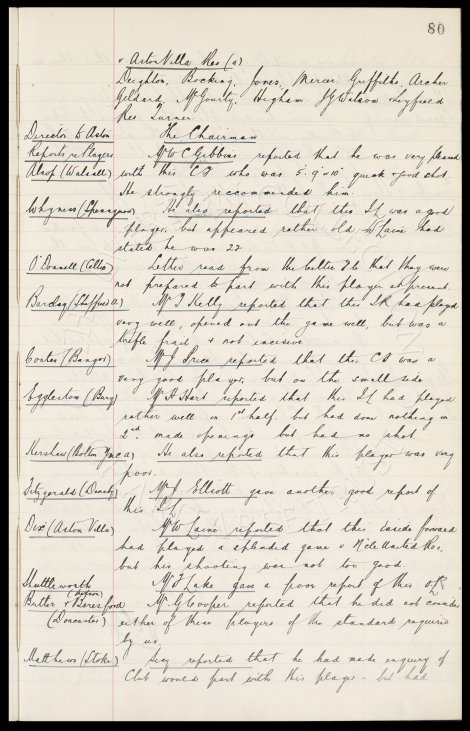 80
v Aston Villa Res (a)
Deighton, Bocking, Jones, Mercer, Griffiths, Archer
Geldard, McGourty, Higham, J G Watson, Leyfield
Res Turner.
Director to Aston The Chairman
Reports re Players Mr W C Gibbins reported that he was very pleased
Alsop (Walsall) with this CF who was 5.9 x 10 quick & good shot.
He strongly reccommended him.
He also reported that this IL was a good
player, but appeared rather old, had
stated he was 22
O'Donnell (Celtic) Letter read from the Celtic Fc that they were
not prepared to part with this player at present.
Barclay (Sheffield U) Mr T Kelly reported that this IR had played
very well, opened out the game well, but was a
trifle frail & not incisive
Coates (Bangor) Mr J Price reported that this CF was a
very good player, but on the small side
Eggleston (Bury) Mr H Hart reported that this IL had played
rather well in 1st half, but had done nothing in
2nd. made openings but had no shot
Kershaw (Bolton Ymca) He also reported that this player was very
poor.
Fitzgerald Mr J Elliott gave another good report of
this
Dix (Aston Villa) this inside forward
had played a splendid game v N'cle United Res.
but his shooting was not too good.
Shuttleworth Mr T Lake gave a poor report of this
Butler & Beresford Mr G Cooper reported that he did not consider
(Doncaster) either of these players of the standard required
by us.
Matthews (Stoke) Secy reported that he had made enquiry if
Club would part with this player - but had